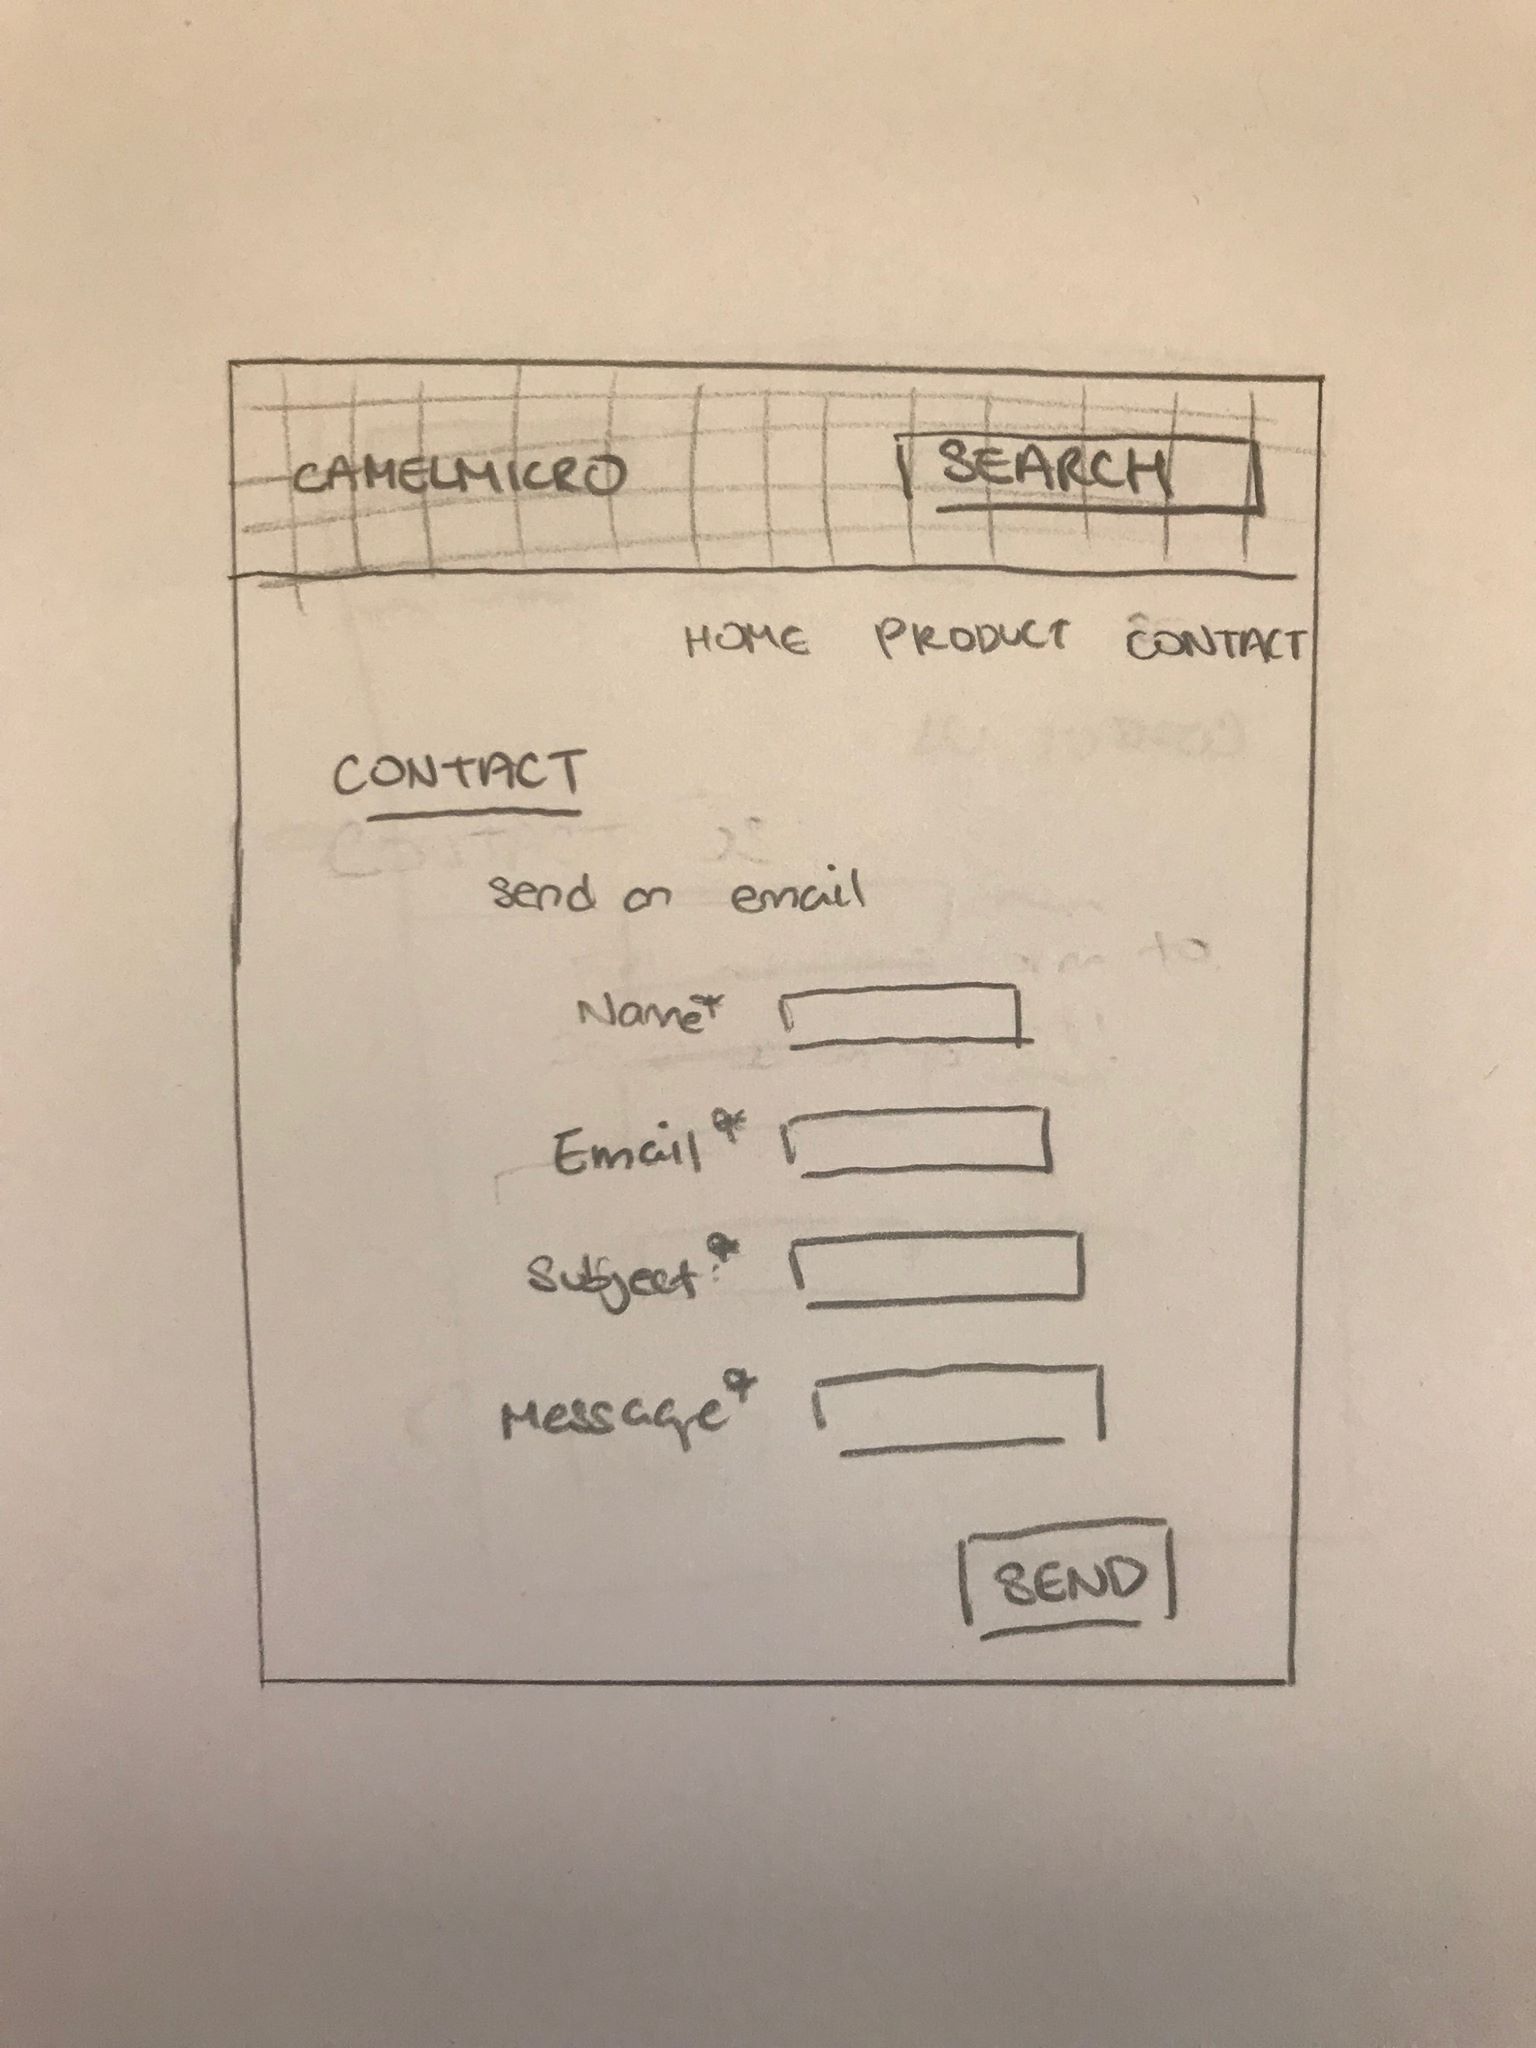 CAMELMICRO SEARCH
HOME PRODUCT CONTACT
CONTACT
send an email
Name*
Email*
Subject:*
Message*
SEND